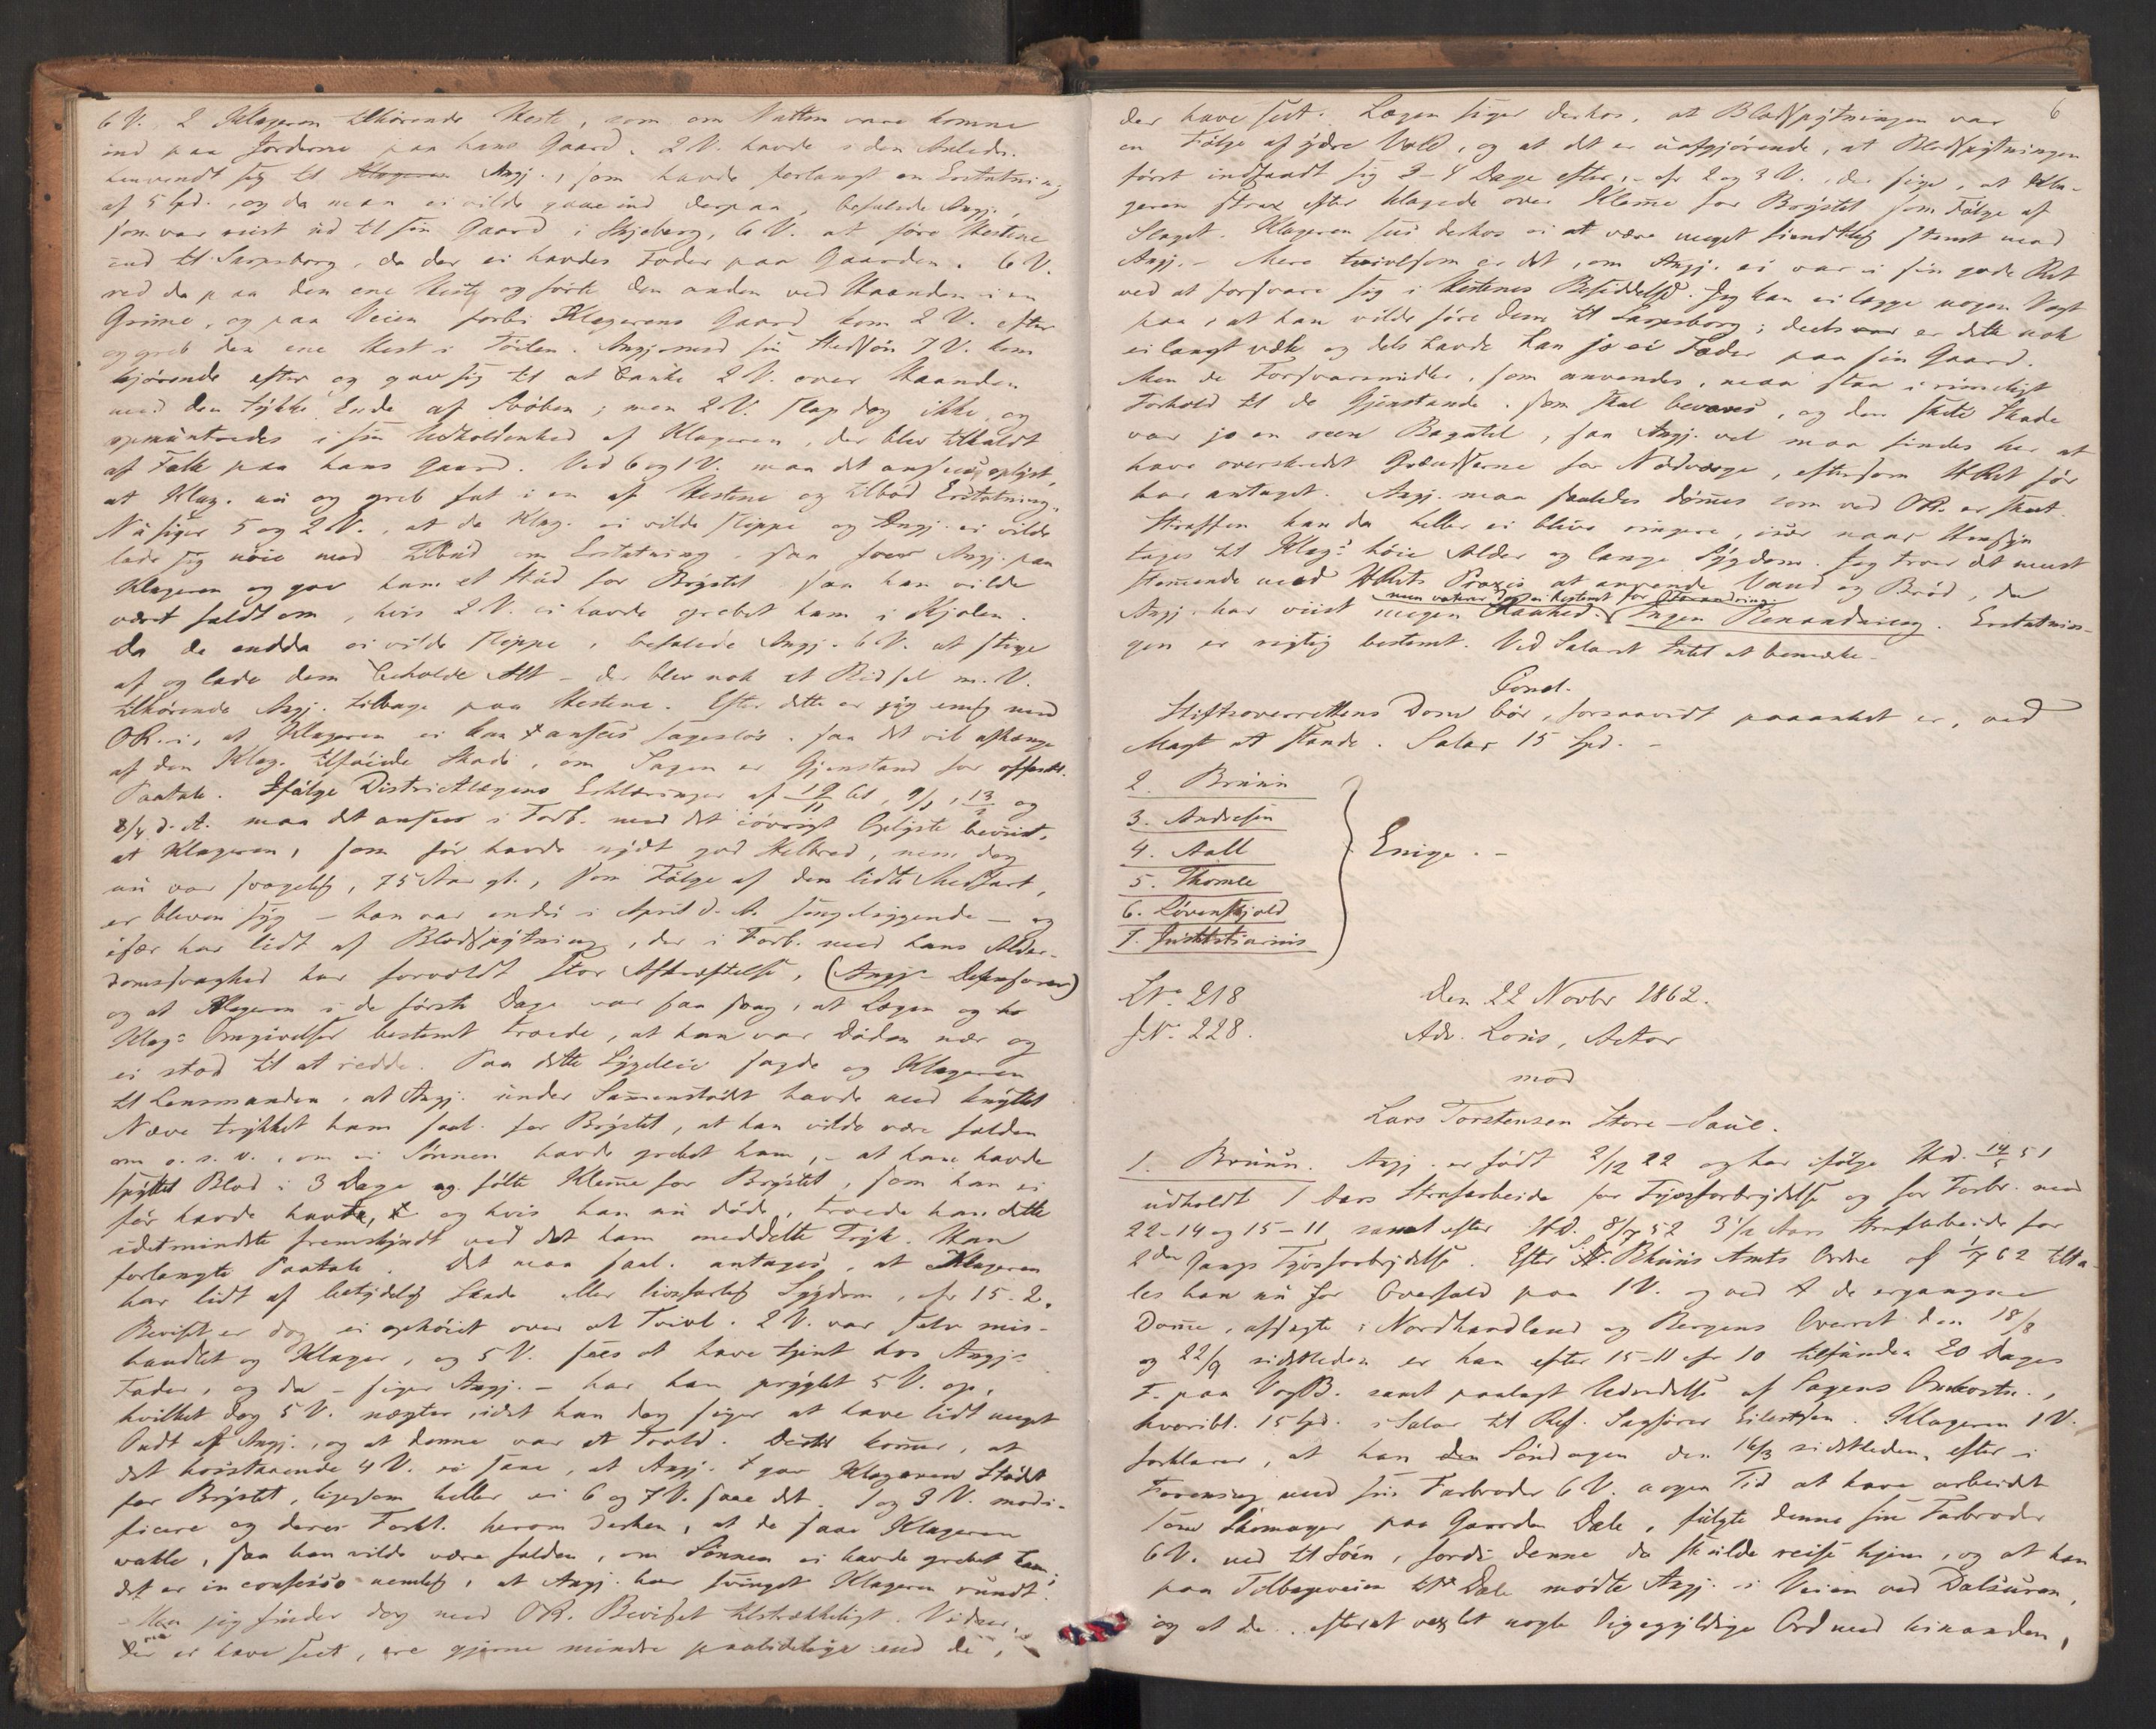 6 V. 2 Klageren tilhørende Heste, som om Natten vare komne
ind paa Jorderne paa hans Gaard. 2 V. havde i den Anledn.
henvendt sig til Angj., som havde forlangt en Erstatning
af 5 Spd., og da man ei vilde gaae ind derpaa, befalede Angj.,
som var reist ud til sin Gaard i Skjeberg, 6 V. at føre Hestene
ind til Sarpsborg, da der ei havdes Foder paa Gaarden. 6 V.
red da paa den ene Hest og førte den anden ved Haanden i en
Grime, og paa Veien forbi Klagerens Gaard kom 2 V. efter
og greb den ene Hest i Tøilen. Angj. med sin Stedsøn 7 V. kom
kjørende efter og gav sig til at banke 2 V. over Haanden
med den tykke Ende af Svøben; men 2 V. slap dog ikke, og
opmuntredes i sin Udholdenhed af Klageren, der blev tilkaldt
af Folk paa hans Gaard. Ved 6 og 1 V. maa det ansees oplyst,
at Klag. nu og greb fat i en af Hestene og tilbød Erstatning.
Nu siger 5 og 2 V., at da Klag. ei vilde slippe og Angj. ei vilde
lade sig nøie med Tilbud om Erstatning, saa foer Angj. paa
Klageren og gav ham et Stød for Brystet saa han vilde
været faldt om, hvis 2 V. ei havde grebet ham i Kjolen.
Da de endda ei vilde slippe, befalede Angj. 6 V. at stige
af og lade dem beholde Alt – der blev nok et Bidsel m. V.
tilhørende Angj. tilbage paa Hestene. Efter dette er jeg enig med
OR. i, at Klageren ei kan ansees sagesløs, saa det vil afhænge
af den Klag. tilføiede Skade, om Sagen er Gjenstand for offentl.
Paatale. Ifølge Districtlægens Erklæringer af 19/11 61, 9/1, 13/2 og
8/4 d. A. maa det ansees i Forb. med det iøvrigt Oplyste bevist,
at Klageren, som før havde nydt god Helbred, men dog
nu var svagelig, 75 Aar gl., som Følge af den lidte Medfart,
er bleven syg – han var endnu i April d. A. sengeliggende – og
især har lidt af Blodspytning, der i Forb. med hans Alder-
domssvaghed har forvoldt stor Afkræftelse, (Angjs Defensor)
og at Klageren i de første Dage var saa svag, at Lægen og
Klags Omgivelser bestemt troede, at han var Døden nær og
ei stod til at redde. Paa dette Sygeleie sagde og Klageren
til Lensmanden, at Angj. under Sammenstødet havde med knyttet
Næve trykket ham saal. for Brystet, at han vilde være falden
om o. s. v., om ei Sønnen havde grebet ham, – at han havde
spyttet Blod i 3 Dage og følte Klemme for Brystet, som han ei
før havde havt, og hvis han nu døde, troede han dette
idetmindste fremskyndt ved det ham meddelte Tryk. Han
forlangte Paatale. Det maa saal. antages, at Klageren
har lidt af betydelig Skade eller livsfarlig Sygdom, cfr 15-2.
Beviset er dog ei ophøiet over al Tvivl. 2 V. var selv mis-
handlet og Klager, og 5 V. sees at have tjent hos Angjs
Fader, og da – siger Angj. – har han pryglet 5 V. op,
hvilket dog 5 V. nægter, idet han dog siger at have lidt meget
Ondt af Angj., og at denne var et Trold. Dertil kommer, at
det hosstaaende 4 V. ei saae, at Angj. gav Klageren Stødet
for Brystet, ligesom heller ei 6 og 7 V. saae det. 1 og 3 V. modi-
ficere og deres Forkl. herom derhen, at de saae Klageren
vakle, saa han vilde være falden, om Sønnen ei havde grebet ham;
det er in confesso nemlig, at Angj. har svinget Klageren rundt.
– Men jeg finder dog med OR. Beviset tilstrækkeligt. Vidner,
der ei have seet, ere gjerne mindre paalidelige end de,
6
der have seet. Lægen siger derhos, at Blodspytningen var
en Følge af ydre Vold, og at det er uafgjørende, at Blodspytningen
først indfandt sig 3-4 Dage efter, – cfr 2 og 3 V., der sige, at Kla-
geren strax efter klagede over Klemme for Brystet som Følge af
Slaget. Klageren sees derhos ei at være meget fiendtlig stemt mod
Angj. – Mere tvivlsom er det, om Angj. ei var i sin gode Ret
ved at forsvare sig i Hestenes Besiddelse. Jeg kan ei lægge nogen Vægt
paa, at han vilde føre dem til Sarpsborg; deels er dette nok
ei langt væk og dels havde han jo ei Foder paa sin Gaard.
Men de Forsvarsmidler, som anvendes, maa staa i rimeligt
Forhold til de Gjenstande, som skal bevares, og den skete Skade
var jo en reen Bagatel, saa Angj. vel maa findes her at
have overskredet Grændserne for Nødværge, eftersom HRet før
har antaget. Angj. maa saaledes dømmes som ved OR. er skeet.
Straffen kan da heller ei blive ringere, især naar Hensyn
tages til Klags høie Alder og lange Sygdom. Jeg troer det mest
stemmende med HRets Praxis at anvende Vand og Brød, da
men voterer dog ei bestemt for Forandring.
Angj. har viist megen Raahed. Ingen Forandring. Erstatnin-
gen er rigtig bestemt. Ved Salaret Intet at bemærke.
Concl.
Stiftsoverrettens Dom bør, forsaavidt paaanket er, ved
Magt at stande. Salar 15 Spd. –
2. Bruun
3. Andresen
4. Aall
5. Thomle
6. Løvenskjold
7. Justitiarius
Enige. –
LNo 218
JNo 228.
Den 22 Novbr 1862.
Adv. Lous, Actor
mod
Lars Torstensen Store-Saue.
1. Bruun. Angj. er født 2/12 22 og har ifølge HD. 14/5 51
udholdt 1 Aars Strafarbeide for Tyvsforbrydelse og for Forbr. mod
22-14 og 15-11 samt efter HD. 8/7 52 3 1/2 Aars Strafarbeide for
2den Gangs Tyvsforbrydelse. Efter N. Bhuus Amts Ordre af 1/7 62 tilta-
les han nu for Overfald paa 1 V. og ved de ergangne
Domme, afsagte i Nordhordland og Bergens Overret den 18/8
og 22/9 sidstleden er han efter 15-11 cfr 10 tilfunden 20 Dages
F. paa VogB. samt paalagt Udredelse af Sagens Omkostn.,
hvoribl. 15 Spd. i Salar til Ref. Sagfører Eilertsen. Klageren 1 V.
forklarer, at han Søndagen den 16/3 sidstleden, efter i
Forening med sin Farbroder 6 V. nogen Tid at have arbeidet
som Skomager paa Gaarden Dale, fulgte denne sin Farbroder
6 V. ned til Søen, fordi denne da skulde reise hjem, og at han
paa Tilbageveien til Dale mødte Angj. i Veien ved Dalsuren,
og at de efterat vexlet nogle ligegyldige Ord med hinanden,